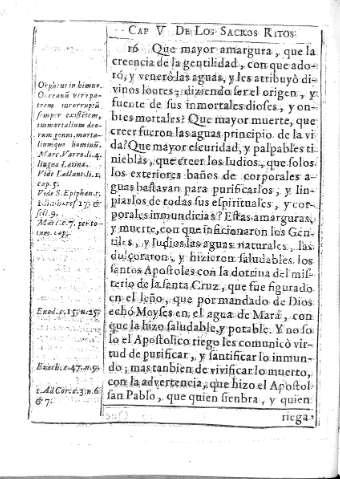 CAP V DE LOS SACROS RITOS.
16 Que mayor amargura, que la
creencia de la gentilidad, con que ado-
ró, y veneró las aguas, y les atribuyó di-
vinos loores: diziendo ser el origen, y
fuente de sus inmortales dioses, y on-
bres mortales? Que mayor muerte, que
creer fueron las aguas principio de la vi-
da? Que mayor escuridad, y palpables ti-
nieblas, que creer los Iudios, que solos
los exteriores baños de corporales a-
guas bastavan para purificarlos, y lin-
piarlos de todas sus espirituales, y cor-
porales inmundicias? Estas amarguras,
y muerte, con que inficionaron los Gen-
tiles, y Iudios las aguas naturales, las
dulçoraron, y hizieron saludables los
santos Apostoles con la dotrina del mis-
terio de la santa Cruz, que fue figurado
en el leño, que por mandado de Dios
echó Moyses en el agua de Mará, con
que la hizo saludable, y potable. Y no so
lo el Apostolico riego les comunicò vir-
tud de purificar, y santificar lo inmun-
do; mas tanbien de vivificar lo muerto,
con la advertencia, que hizo el Apostol
san Pablo, que quien sienbra, y quien
riega,
Orpheus in himno.
Oceanũ vero pa-
trem incorruptũ
semper existẽtem,
immortalium deo-
rum genus, morta-
liumque hominũ.
Marc. Varro li. 4.
lingua Latina.
cap. 5.
Vide S. Epiphan.
Exod. c. 15. n. 25.
Ezech. c. 47. n. 9.
1. Ad Cor. c. 3. n. 6
& 7.